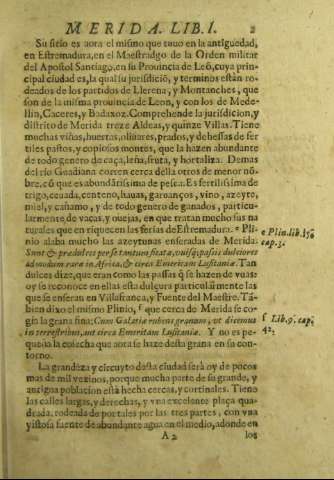 MERIDA. LIB. I. 2
Su sitio es aora el mismo que tuuo en la antiguedad,
en Estremadura, en el Maestradgo de la Orden militar
del Apostol Santiago, en su Prouincia de Leõ, cuya prin-
cipal ciudad es, la qual su jurisdiciõ, y terminos estàn ro-
deados de los partidos de Llerena, y Montanches, que
son de la misma prouincia de Leon, y con los de Mede-
llin, Caceres, y Badaxoz. Comprehende la jurisdicion, y
distrito de Merida treze Aldeas, y quinze Villas. Tiene
muchas viñas, huertas, oliuares, prados, y dehessas de fer
tiles pastos, y copiosos montes, que la hazen abundante
de todo genero de caça, leña, fruta, y hortaliza. Demas
del rio Guadiana corren cerca della otros de menor nõ-
bre, cõ que es abundãtissima de pesca. Es fertilissima de
trigo, ceuada, centeno, hauas, garuanços, vino, azeyte,
miel, y cañamo, y de todo genero de ganados, particu-
larmente, de vacas, y ouejas, en que tratan mucho sus na
turales que en riquecen las ferias de Estremadura. e Pli-
nio alaba mucho las azeytunas enseradas de Merida:
Sunt & prædulces per se tantum siccatæ, vuisq; passis dulciores
admodum raræ in Africa, & circa Emeritam Lusitaniæ. Tan
dulces dize, que eran como las passas q̃ se hazen de vuas:
oy se reconoce en ellas esta dulçura particularmente las
que se enseran en Villafranca, y Fuente del Maestre. Tã-
bien dixo el mismo Plinio, f que cerca de Merida se co-
gia la grana fina: Cum Galatiæ rubens granum, vt dicemus
in terrestribus, aut circa Emeritam Lusitaniæ. Y no es pe-
queña la cosecha que aora se haze desta grana en su con-
torno.
La grandeza y circuyto desta ciudad serà oy de pocos
mas de mil vezinos, porque mucha parte de su grande, y
antigua poblacion està hecha cercas, y cortinales. Tiene
las calles largas, y derechas, y vna excelente plaça qua-
drada, rodeada de portales por las tres partes, con vna
vistosa fuente de abundante agua en el medio, adonde en
A 2 los
e Plin. lib. 15.
cap. 3.
f Lib. 9. cap.
42.